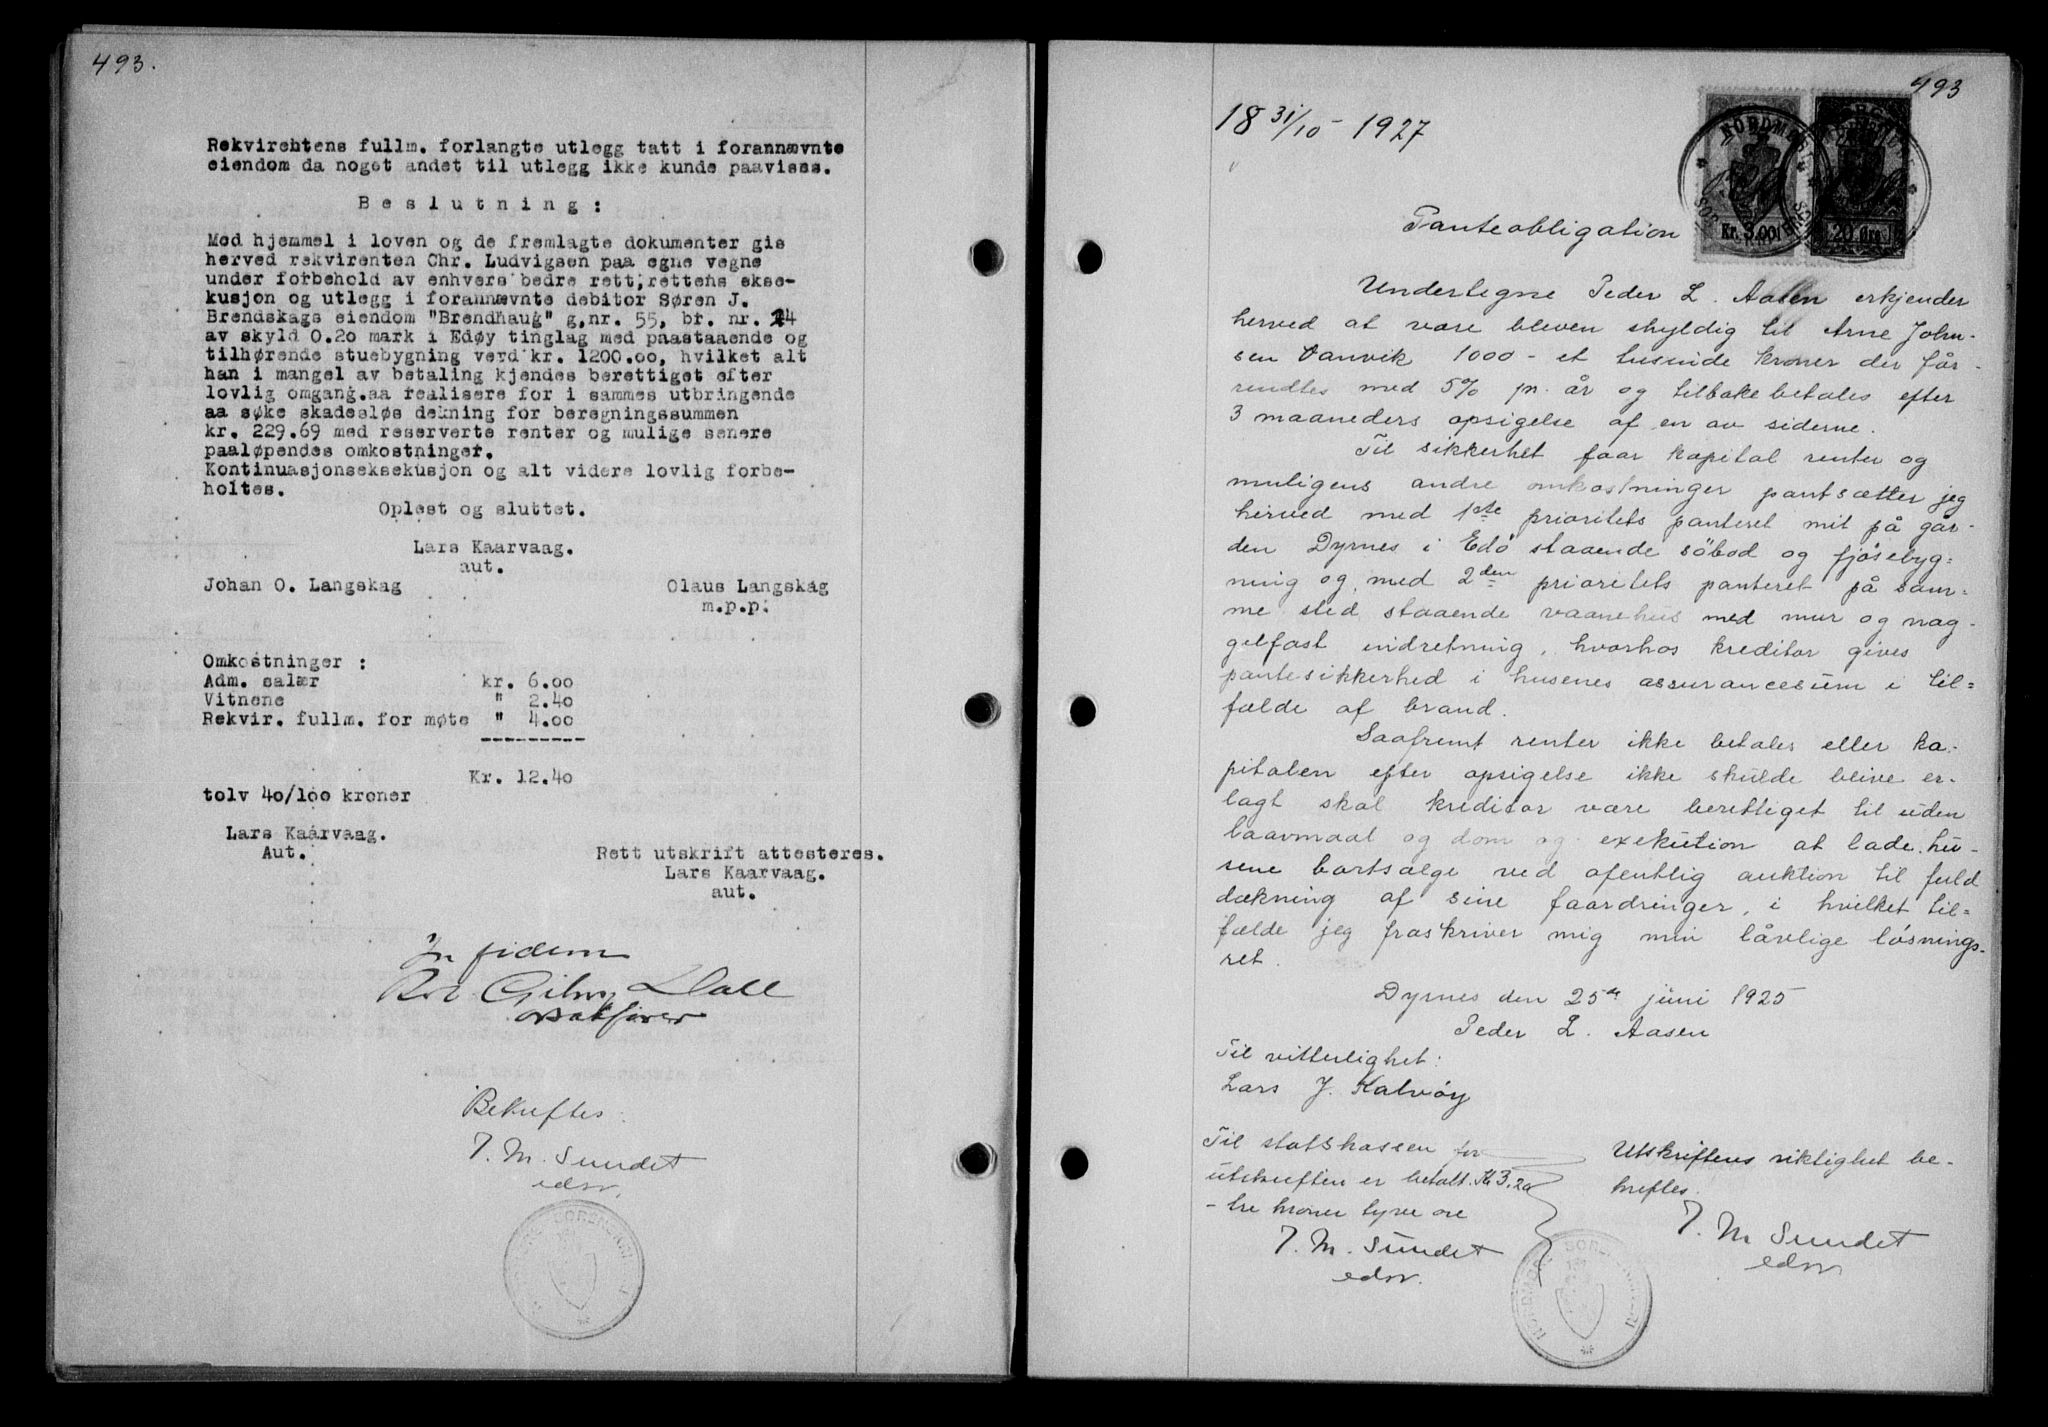 493.
Rekvirehtens fullm. forlangte utlegg tatt i forannævnte
eiendom da noget andet til utlegg ikke kunde paavises.
B e s l u t n i n g :
Med hjemmel i loven og de fremlagte dokumenter gis
herved rekvirenten Chr. Ludvigsen paa egne vegne
under forbehold av enhvers bedre rett, rettens ekse-
kusjon og utlegg i forannævnte debitor Søren J.
Brendskags eiendom "Brendhaug" g,nr. 55, br. nr. 24
av skyld 0.20 mark i Edøy tinglag med paastaaende og
tilhørende stuebygning verd kr. 1200.00, hvilket alt
han i mangel av betaling kjendes berettiget efter
lovlig omgang.aa realisere for i sammes utbringende
aa søke skadesløs dekning for beregningssummen
kr. 229.69 med reserverte renter og mulige senere
paaløpendes omkostninger.
Kontinuasjonseksekusjon og alt videre lovlig forbe-
holtes.
Oplest og sluttet.
Lars Kaarvaag.
aut.
Johan O. Langskag
Olaus Langskag
m.p.p.
Omkostninger :
Adm. salær kr. 6.00
Vitnene " 2.40
Rekvir. fullm. for møte " 4.00
----------
Kr. 12.40
tolv 40/100 kroner
Lars Kaarvaag.
Aut.
Rett utskrift attesteres.
Lars Kaarvaag.
aut.
In fidem
Dall
Bekreftes:
T. M. Sundet
edsv.
493
18 31/10 - 1927
NORDMØRE
Kr. 3.00
20 Øre
Panteobligation
Undertegne Peder L. Aasen erkjender
herved at være bleven skyldig til Arne John-
sen Vanvik 1000 - et tusinde kroner der får-
rendtes med 5% pr. år og tilbakebetales efter
3 maaneders opsigelse af en av siderne.
Til sikkerhet faar kapital renter og
muligens andre omkostninger pantsætter jeg
herved med 1ste prioritets panteret mit på går-
den Dyrnes i Edö staaende söbod og fjösebyg=
ning og, med 2den prioritets panteret på sam=
me sted staaende vaanehus med mur og nag-
gelfast indretning, hvorhos kreditor gives
pantesikkerhed i husenes assurancesum i til=
fælde af brand.
Saafremt renter ikke betales eller ka-
pitalen efter opsigelse ikke skulde blive er-
lagt skal kreditor være berettiget til uden
laavmaal og dom og exekution at lade hu-
sene bortsælge ved ofentlig auktion til fuld
dækning af sine faardringer, i hvilket til=
fælde jeg fraskriver mig min lårlige løsnings-
ret.
Dyrnes den 25de juni 1925
Peder L. Aasen
Til vitterlighet:
Lars J. Kalvöy
Til statskassen for
utskriften er betalt. Kr 3,20
- tre kroner tyve øre
T. M. Sundet
edsv.
Utskriftens riktighet be-
kreftes.
T. M. Sundet
edsv.